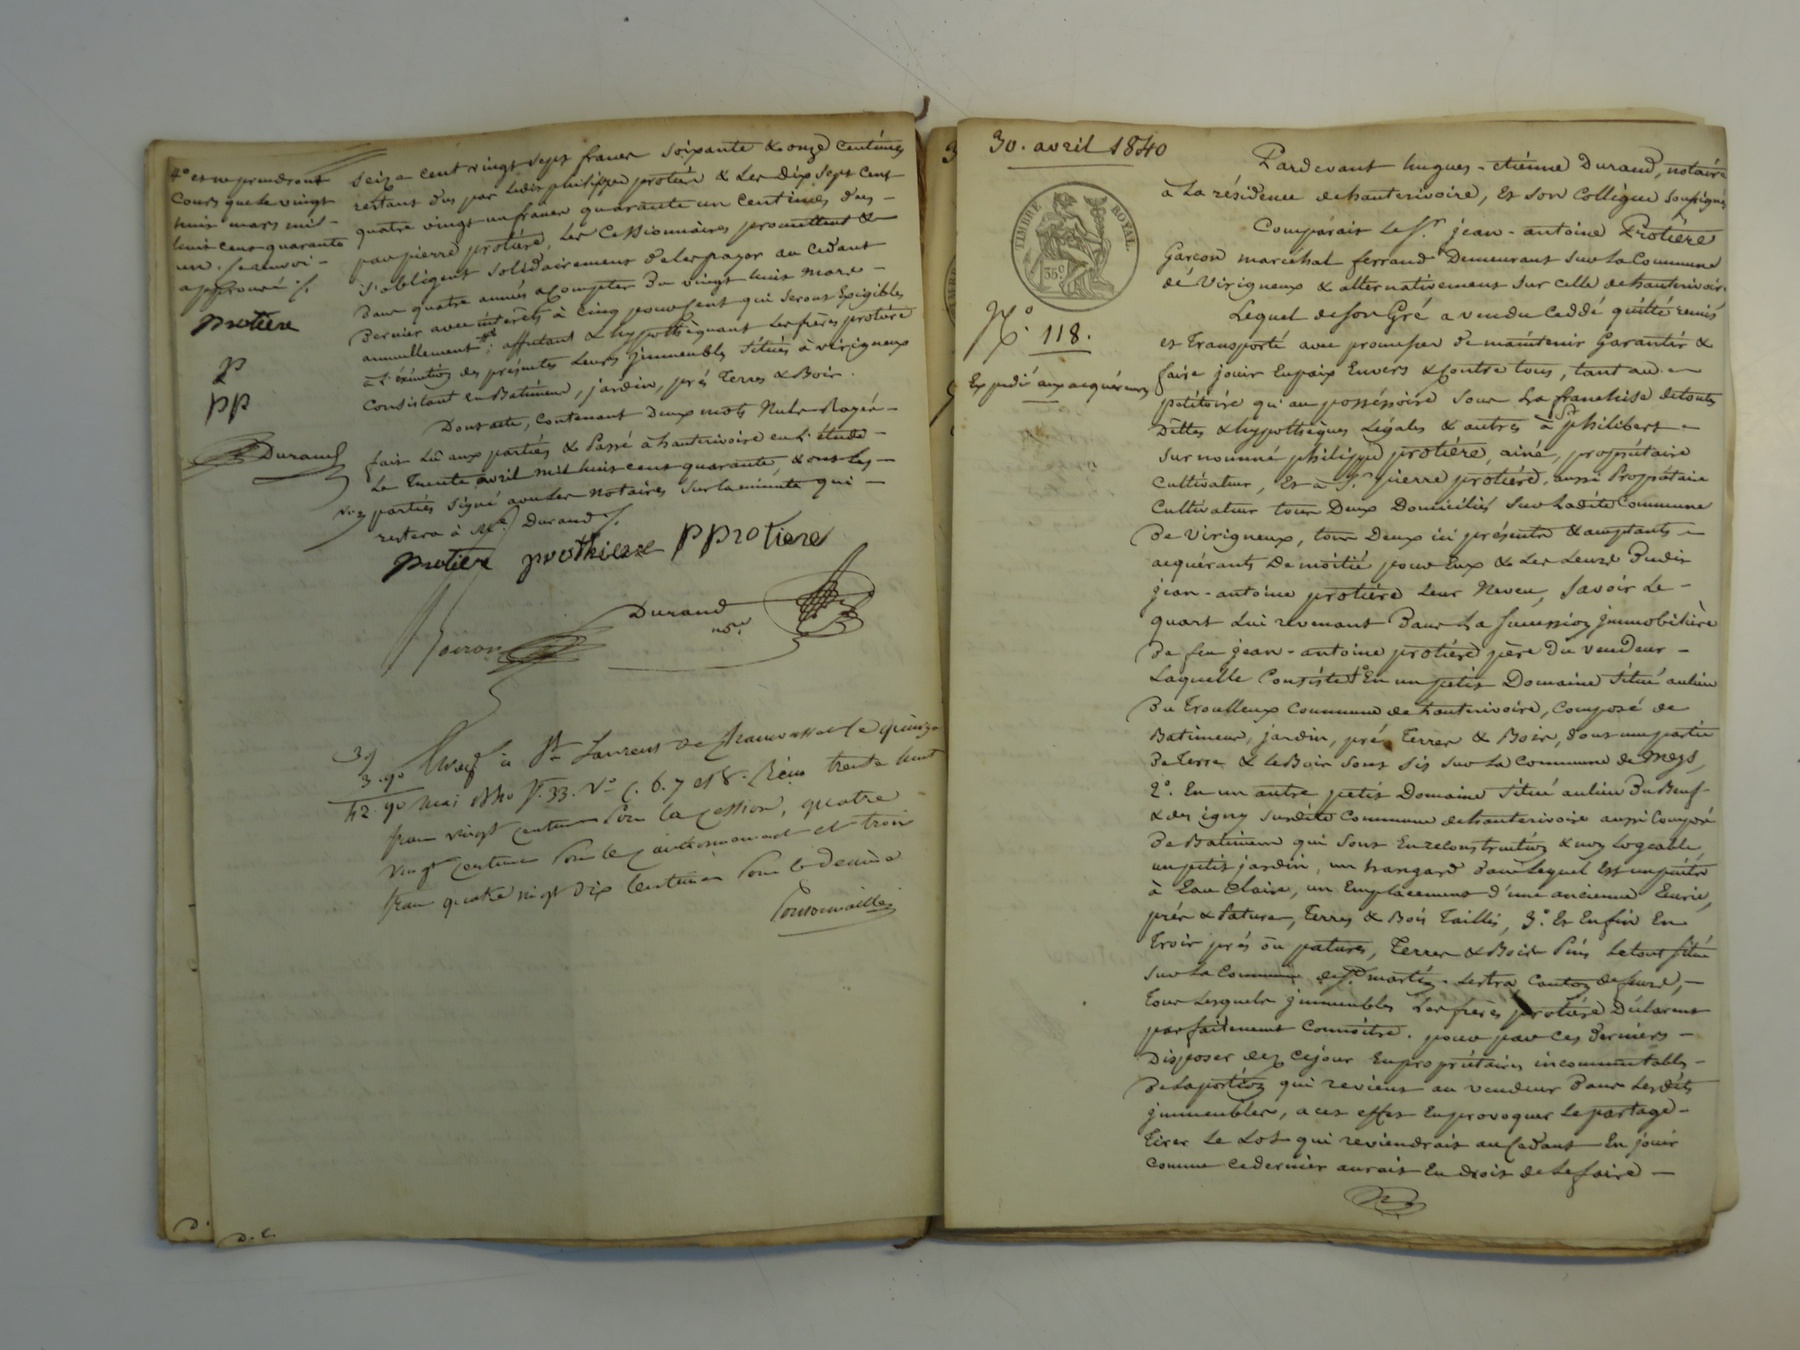 4° et ne prendront
Cours que le vingt
huit mars mil
huit cent quarante
un. Renvoi
approuvé ./.
protiere
P
PP
Durand
Seize cent vingt sept francs soixante & onze centimes
restant dus par ledit philippe protière & les dix sept cent
quatre vingt un francs quarante un centimes dus
par pierre protière, les Cessionnaires promettent &
s'obligent solidairement de les payer au cédant
Dans quatre années à compter du vingt huit mars
dernier avec intérêts à cinq pour cent qui seront Exigibles
annuellement; affectant & hypothéquant les frères protière
à l'éxécution des présentes leurs immeubles situés à virigneux
Consistant en Batimens, jardin, prés Terres & Bois.
Dont acte, contenant Deux mots Nuls Rayés
fait Lû aux parties & Passé à hauterivoire en l'étude
Le Trente avril mil huit cent quarante, & ont les
parties signé avec les Notaires sur la minute qui
restera à Me Durand ./.
protiere prothiere p protiere
Durand
nore
Boiron
39
3.90
42.90
Enregé à St Laurent de Chamousset le quinze
mai 1840 f. 33. Vo C. 6. 7 et 8. Reçu trente huit
francs vingt centimes pour la cession, quatre
vingt centimes pour le cautionnement et trois
francs quatre vingt dix centimes pour le dixième
D.
D. E.
30. avril 1840
TIMBRE ROYAL
35c
No. 118.
Expédié aux acquéreurs
Pardevant hugues-etiènne Durand, notaire
à la résidence de hauterivoire, Et son Collègue soussignés
Comparait le Sr. jean-antoine Protière
Garçon marechal ferrand Demeurant sur la Commune
de Virigneux & alternativement sur celle de hauterivoire.
Lequel de son Gré a vendu Ceddé quitté remis
et Transporté avec promesse de maintenir Garantir &
faire jouir En paix Envers & Contre tous, tant au
pétitoire qu'au posséssoire sous la franchise de toutes
Dettes & hypothèques Légales & autres à Sr philibert
surnommé philippe protière, ainé, propriétaire
cultivateur, Et à Sr. pierre protière, aussi Propriétaire
Cultivateur tous Deux Domiciliés sur Ladite Commune
De Virigneux, tous Deux ici présents & acceptants
acquérants De moitié pour Eux & Les Leurs Dudit
jean-antoine protière Leur Neveu, Savoir Le
quart Lui revenant Dans La succession immobilière
De feu jean-antoine protière père Du vendeur
Laquelle Consiste 1° En un petit Domaine situé au lieu
Du Trouilleux Commune de hauterivoire, Composé de
Batimens, jardin, prés Terres & Bois, dont une partie
De Terre & le Bois sont sis sur La Commune de Meys,
2°. En un autre petit Domaine situé au lieu Du Beuf
& des igny susdite Commune de hauterivoire aussi Composé
De Batimens qui sont En reconstruction & non Logeable
un petit jardin, un hangard dans lequel Est un puits
à Eau Claire, un Emplacement d'une ancienne Ecurie,
prés & Pature, Terres & Bois Taillis, 3°. Et Enfin En
Trois prés ou patures, Terres & Bois Pins Le tout situé
sur La Commune de St martin-Lestra Canton de feurs,
Tous lesquels immeubles Les frères protière Déclarent
parfaitement Connoître. pour par ces Derniers
Disposer dez ce jour En propriétaires incommutables
De La portion qui revient au vendeur Dans Lesdits
immeubles, a cet effet En provoquer Le partage
Tirer Le Lot qui reviendrait au Cédant En jouir
comme ce dernier aurait Eu droit de Le faire